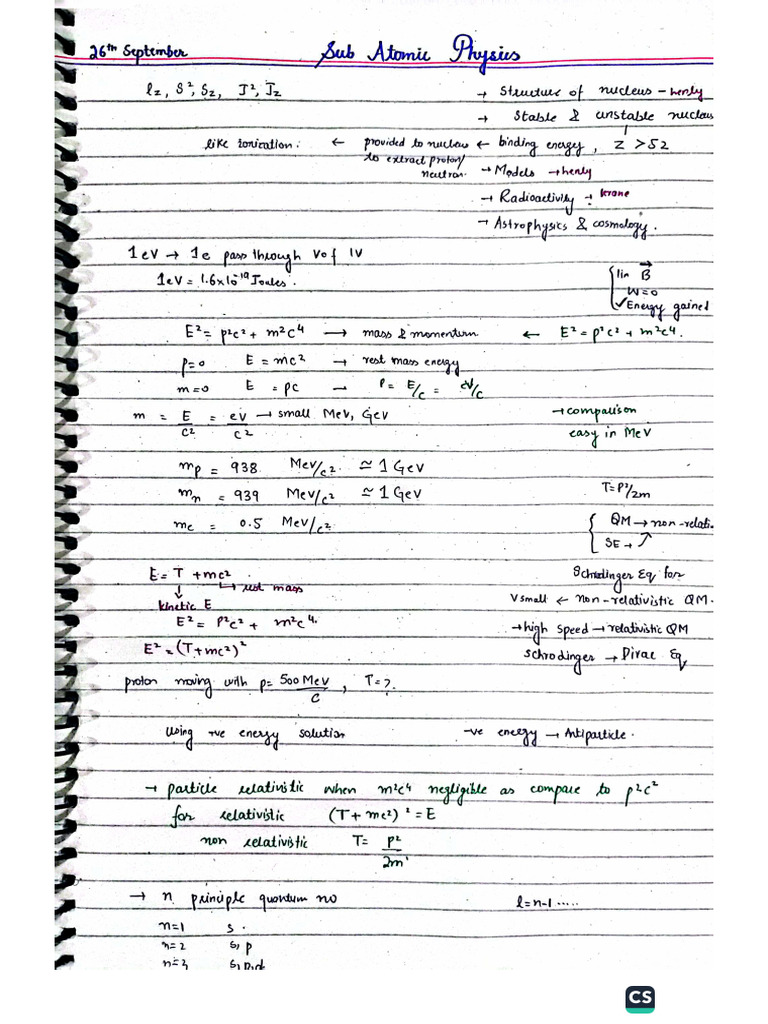 26th September
Sub Atomic Physics
lz, S², Sz, J², Jz
→ Structure of nucleus - henly
→ Stable & unstable nucleus
like ionication. ← provided to nucleus ← binding energy, Z > 52
to extract proton/
neutron.
→ Models → henly
→ Radioactivity → krane
→ Astrophysics & cosmology.
1eV → 1e pass through V of 1V
1eV = 1.6x10⁻¹⁹ Joules.
lin B⃗
W=0
✓Energy gained
E² = p²c² + m²c⁴ → mass & momentum ← E² = p²c² + m²c⁴.
p=0 E = mc² → rest mass energy
m=0 E = pc → P = E/c = eV/c
m = E/c² = ev/c² → small MeV, GeV
→ comparison
easy in MeV
mp = 938 MeV/c² ≃ 1 GeV
mn = 939 MeV/c² ≃ 1 GeV
T = P²/2m
me = 0.5 MeV/c²
QM → non-relati.
SE → ↗
E = T + mc²
↳ rest mass
kinetic E
Schrodinger Eq for
V small ← non-relativistic QM.
E² = P²c² + m²c⁴.
→ high speed → relativistic QM
E² = (T + mc²)²
Schrodinger → Dirac Eq
proton moving with p = 500 MeV/c, T = ?
using +ve energy solution
-ve energy → Antiparticle.
→ particle relativistic when m²c⁴ negligible as compare to p²c²
for relativistic (T + mc²)² = E
non relativistic T = p²/2m
→ n principle quantum no
l = n-1 .....
n=1 s.
n=2 s, p
n=3 s, p, d
CS